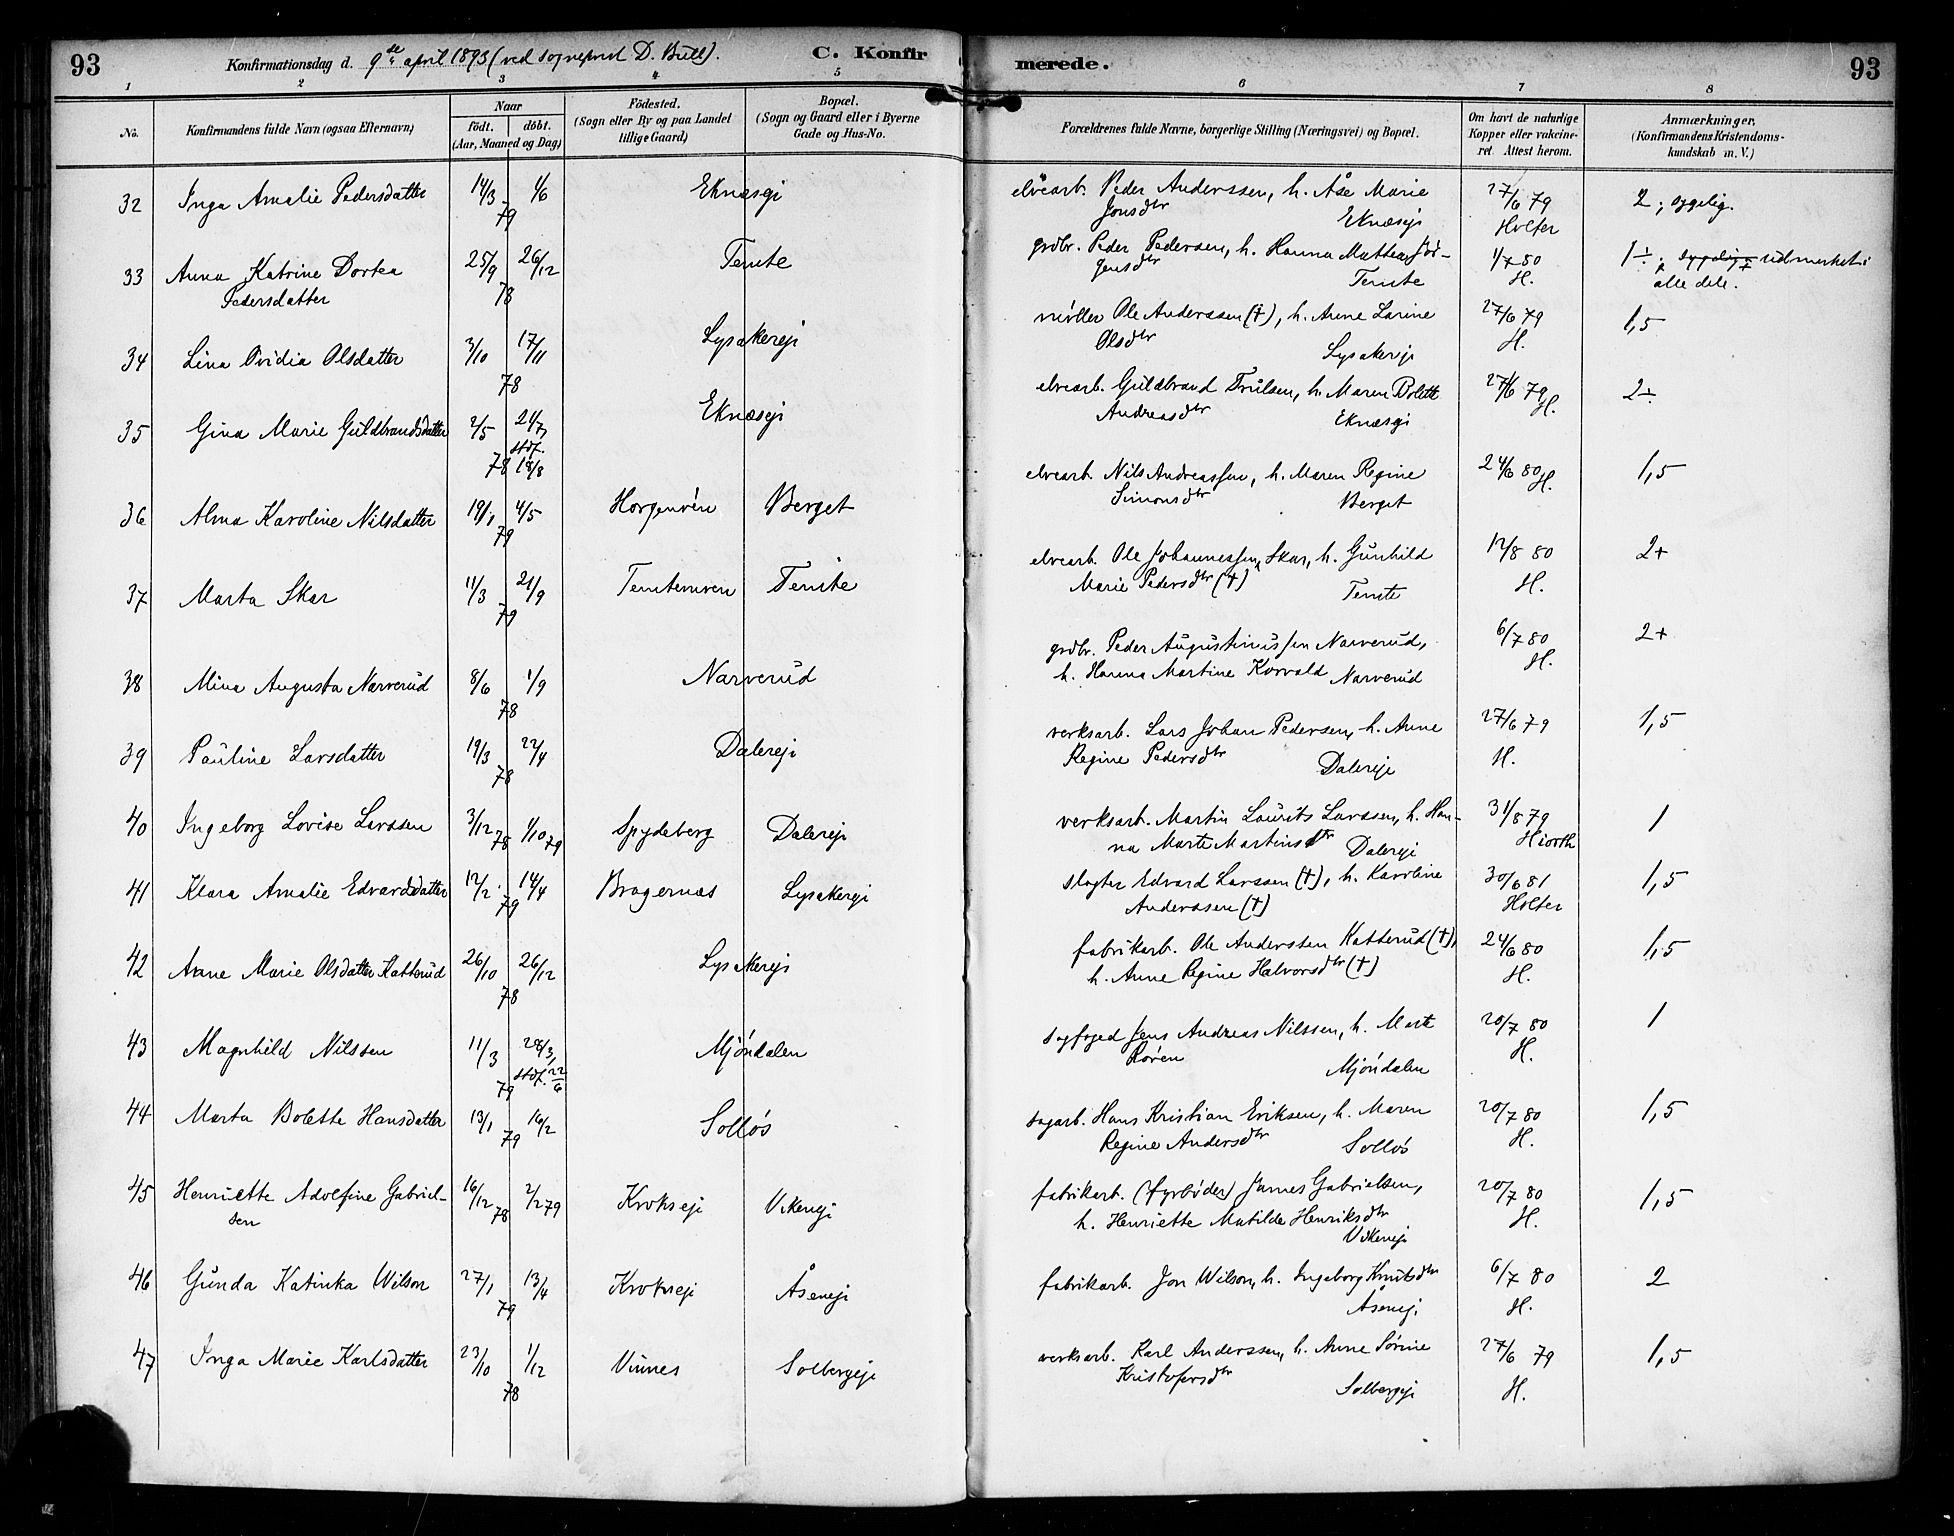 93
Konfirmationsdag d. 9de april 1893 (ved sogneprest D. Bull).
C. Konfir
merede.
93
1 2 3 4 5 6 7 8
No.
Konfirmandens fulde Navn (ogsaa Efternavn)
Naar
födt. döbt.
(Aar, Maaned og Dag)
Födested.
(Sogn eller By og paa Landet
tillige Gaard)
Bopæl.
(Sogn og Gaard eller i Byerne
Gade og Hus-No.
Forældrenes fulde Navne, borgerlige Stilling (Næringsvei) og Bopæl.
Om havt de naturlige
Kopper eller vakcine-
ret. Attest herom.
Anmærkninger,
(Konfirmandens Kristendoms-
kundskab m. V.)
32 Inga Amalie Pedersdatter 14/3 1/6 79 Eknæseji elvearb. Peder Anderssen, h. Åse Marie 27/6 79 2; sygelig.
Jonsdtr Eknæseji Holter
33 Anna Katrine Dortea 25/9 26/12 Temte grdbr. Peder Pedersen, h. Hanna Mathea Jör- 1/7 80 1÷; sygelig; udmerket i
Pedersdatter 78 gensdtr Temte H. alle dele.
34 Lina Ovidia Olsdatter 3/10 17/11 78 Lysakereji möller Ole Anderssen (†), h. Anne Larine 27/6 79 1,5
Olsdtr Lysakereji H.
35 Gina Marie Guldbrandsdatter 2/5 21/7, stdf. 78 18/8 Eknæseji elvearb. Guldbrand Trulsen, h. Maren Bolett 27/6 79 2÷
Andreasdtr Eknæseji H.
36 Alma Karoline Nilsdatter 19/1 4/5 79 Horgenvön Berget elvearb. Nils Andreassen, h. Maren Regine 24/6 80 1,5
Simonsdtr Berget H.
37 Marta Skar 11/3 21/9 79 Temtemoen Temte elvearb. Ole Johannessen Skar, h. Gunhild 12/8 80 2+
Marie Pedersdtr (†) Temte H.
38 Mina Augusta Narverud 8/6 1/9 78 Narverud grdbr. Peder Augustinussen Narverud, 6/7 80 2+
h. Hanna Martine Korvald Narverud H.
39 Pauline Larsdatter 19/3 22/4 78 Dalereji verksarb. Lars Johan Pedersen, h. Anne 27/6 79 1,5
Regine Pedersdtr Dalereji H.
40 Ingeborg Lovise Larssen 3/12 78 1/10 79 Spydeberg Dalereji verksarb. Martin Laurits Larssen, h. Han- 31/8 79 1
na Marte Martinsdtr Dalereji Hiorth
41 Klara Amalie Edvardsdatter 12/2 14/4 79 Bragernæs Lysakereji slagter Edvard Larssen (†), h. Karoline 30/6 81 1,5
Anderssen (†) Holter
42 Anne Marie Olsdatter Katterud 26/10 26/12 78 Lysakereji fabrikarb. Ole Anderssen Katterud (†), 24/6 80 1,5
h. Anne Regine Halvorsdtr (†) H.
43 Magnhild Nilssen 11/3 28/3, 79 stdf. 22/6 Mjöndalen sagfoged Jens Andreas Nilssen, h. Marte 20/7 80 1
Rorén Mjöndalen H.
44 Marta Bolette Hansdatter 13/1 16/2 79 Sollös sagarb. Hans Kristian Eriksen, h. Maren 20/7 80 1,5
Regine Andersdtr Sollös H.
45 Henriette Adolfine Gabriel- 16/12 78 2/2 79 Krokseji Vikeneji fabrikarb. (fyrböder) James Gabrielsen, 20/7 80 1,5
sen h. Henriette Matilde Henriksdtr H.
Vikeneji
46 Gunda Katinka Wilson 27/1 13/4 79 Krokseji Åseneji fabrikarb. Jon Wilson, h. Ingeborg Knutsdtr 6/7 80 2
Åseneji H.
47 Inga Marie Karlsdatter 23/10 1/12 78 Vinnes Solbergeji verksarb. Karl Anderssen, h. Anne Sörine 27/6 79 1,5
Kristofersdtr Solbergeji H.